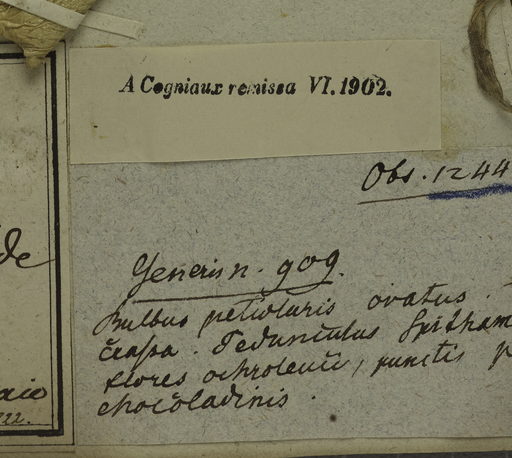 A Cogniaux remissa VI. 1902.
Obs. 1244
Generis n. 909.
Bulbus petiolaris ovatus.
crassa. Pedunculus Spitham
flores ochroleuci, punctis p
chocoladinis.
de